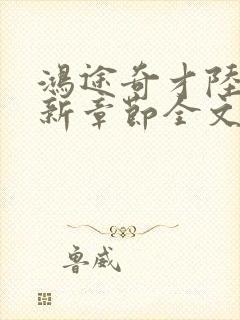 鴻途奇才陸
新章節全文
魯威